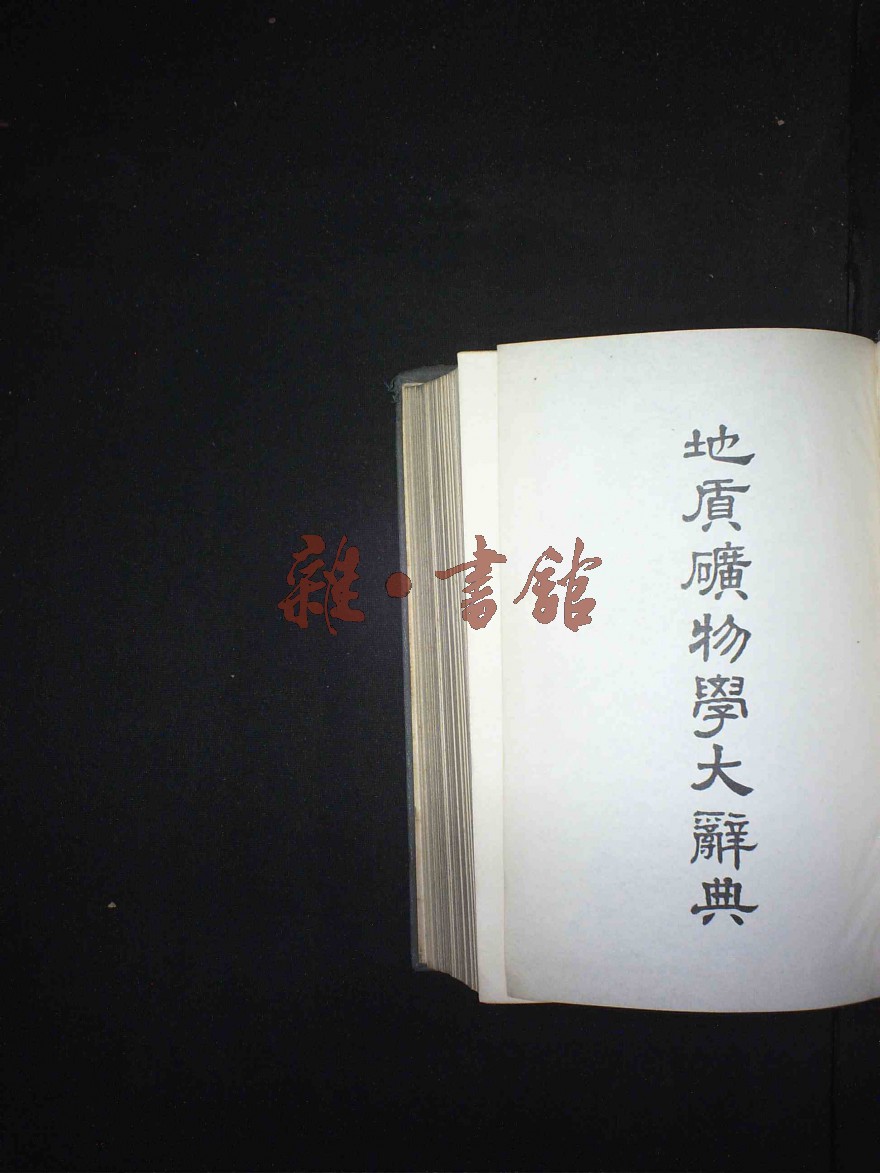 地質礦物學大辭典
雜·書館